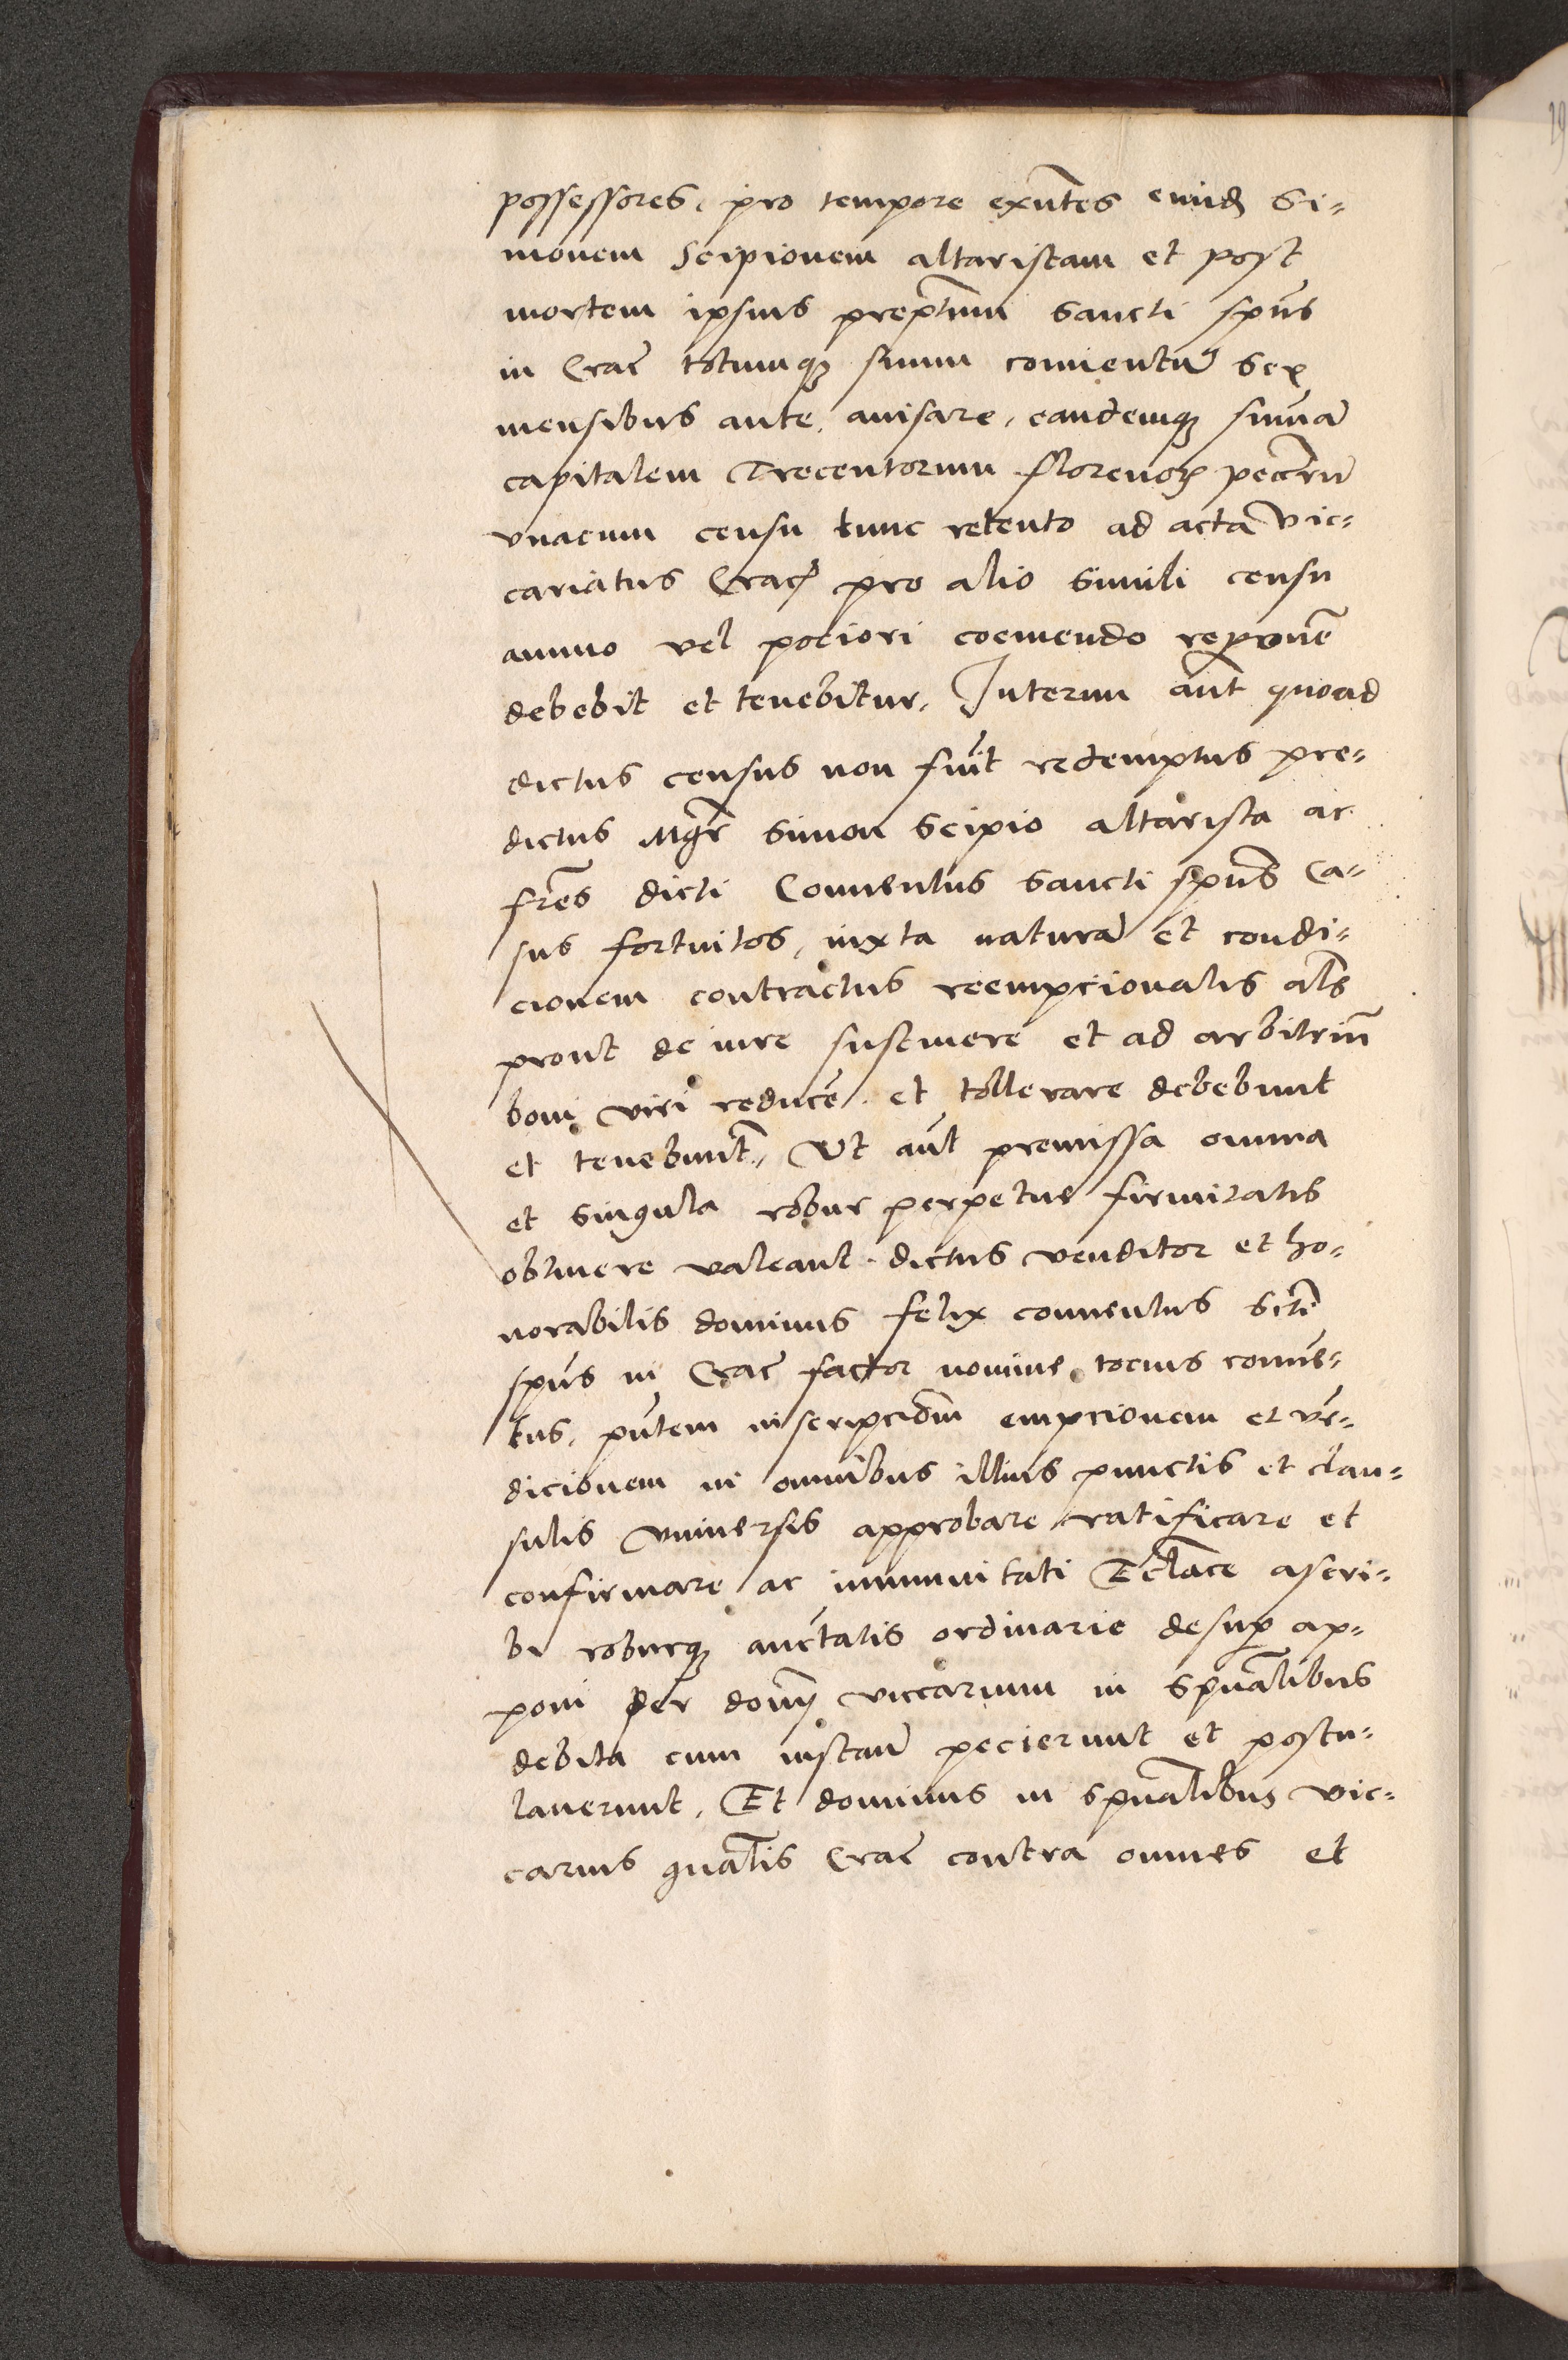 possessores, pro tempore exñtes eund Si-
monem Scipionem altaristam et post
mortem ipsius preptĩum Sancti spũs
in Crac̃ totumqʒ suum conuentũ Sex
mensibus ante auisare, eandemqʒ sum̃ã
capitalem Trecentorum florenoꝝ pecc̃rũ
vnacum censu tunc retento ad acta vic-
cariatus Crac̃ pro alio simili censu
annuo vel pociori coemendo reponẽ
debebit et tenebitur, Interim aũt quoad
dictus census non fuĩt redemptus pre-
dictus Mgr̃ Simon Scipio altarista ac
fr̃es dicti Conuentus Sancti spũs Ca-
sus fortuitos, iuxta naturã et condi-
cionem contractus reempcionalis al̃s
prout de iure sustinere et ad arbitriũ
boni viri reducẽ, et tollerare debebunt
et tenebunt̃, Ut aũt premissa omnia
et singula robur perpetue firmitatis
obtinere valeant, dictus venditor et ho-
norabilis dominus felix conuentus Sctĩ
spũs in Crac̃ factor nomine tocius conuẽ-
tus, pñtem inscripciõm empcionem et vẽ-
dicionem in omnibus illius punctis et clau-
sulis vniuersis approbare ratificare et
confirmare ac immunitati Ecl̃ace ascri-
bi roburqʒ auctatis ordinarie desup̃ ap-
poni per dom̃ viccarium in spũalibus
debita cum instanc̃ pecierunt et postu-
lauerunt, Et dominus in spũalibus vic-
carius gñalis Crac̃ contra omnes et